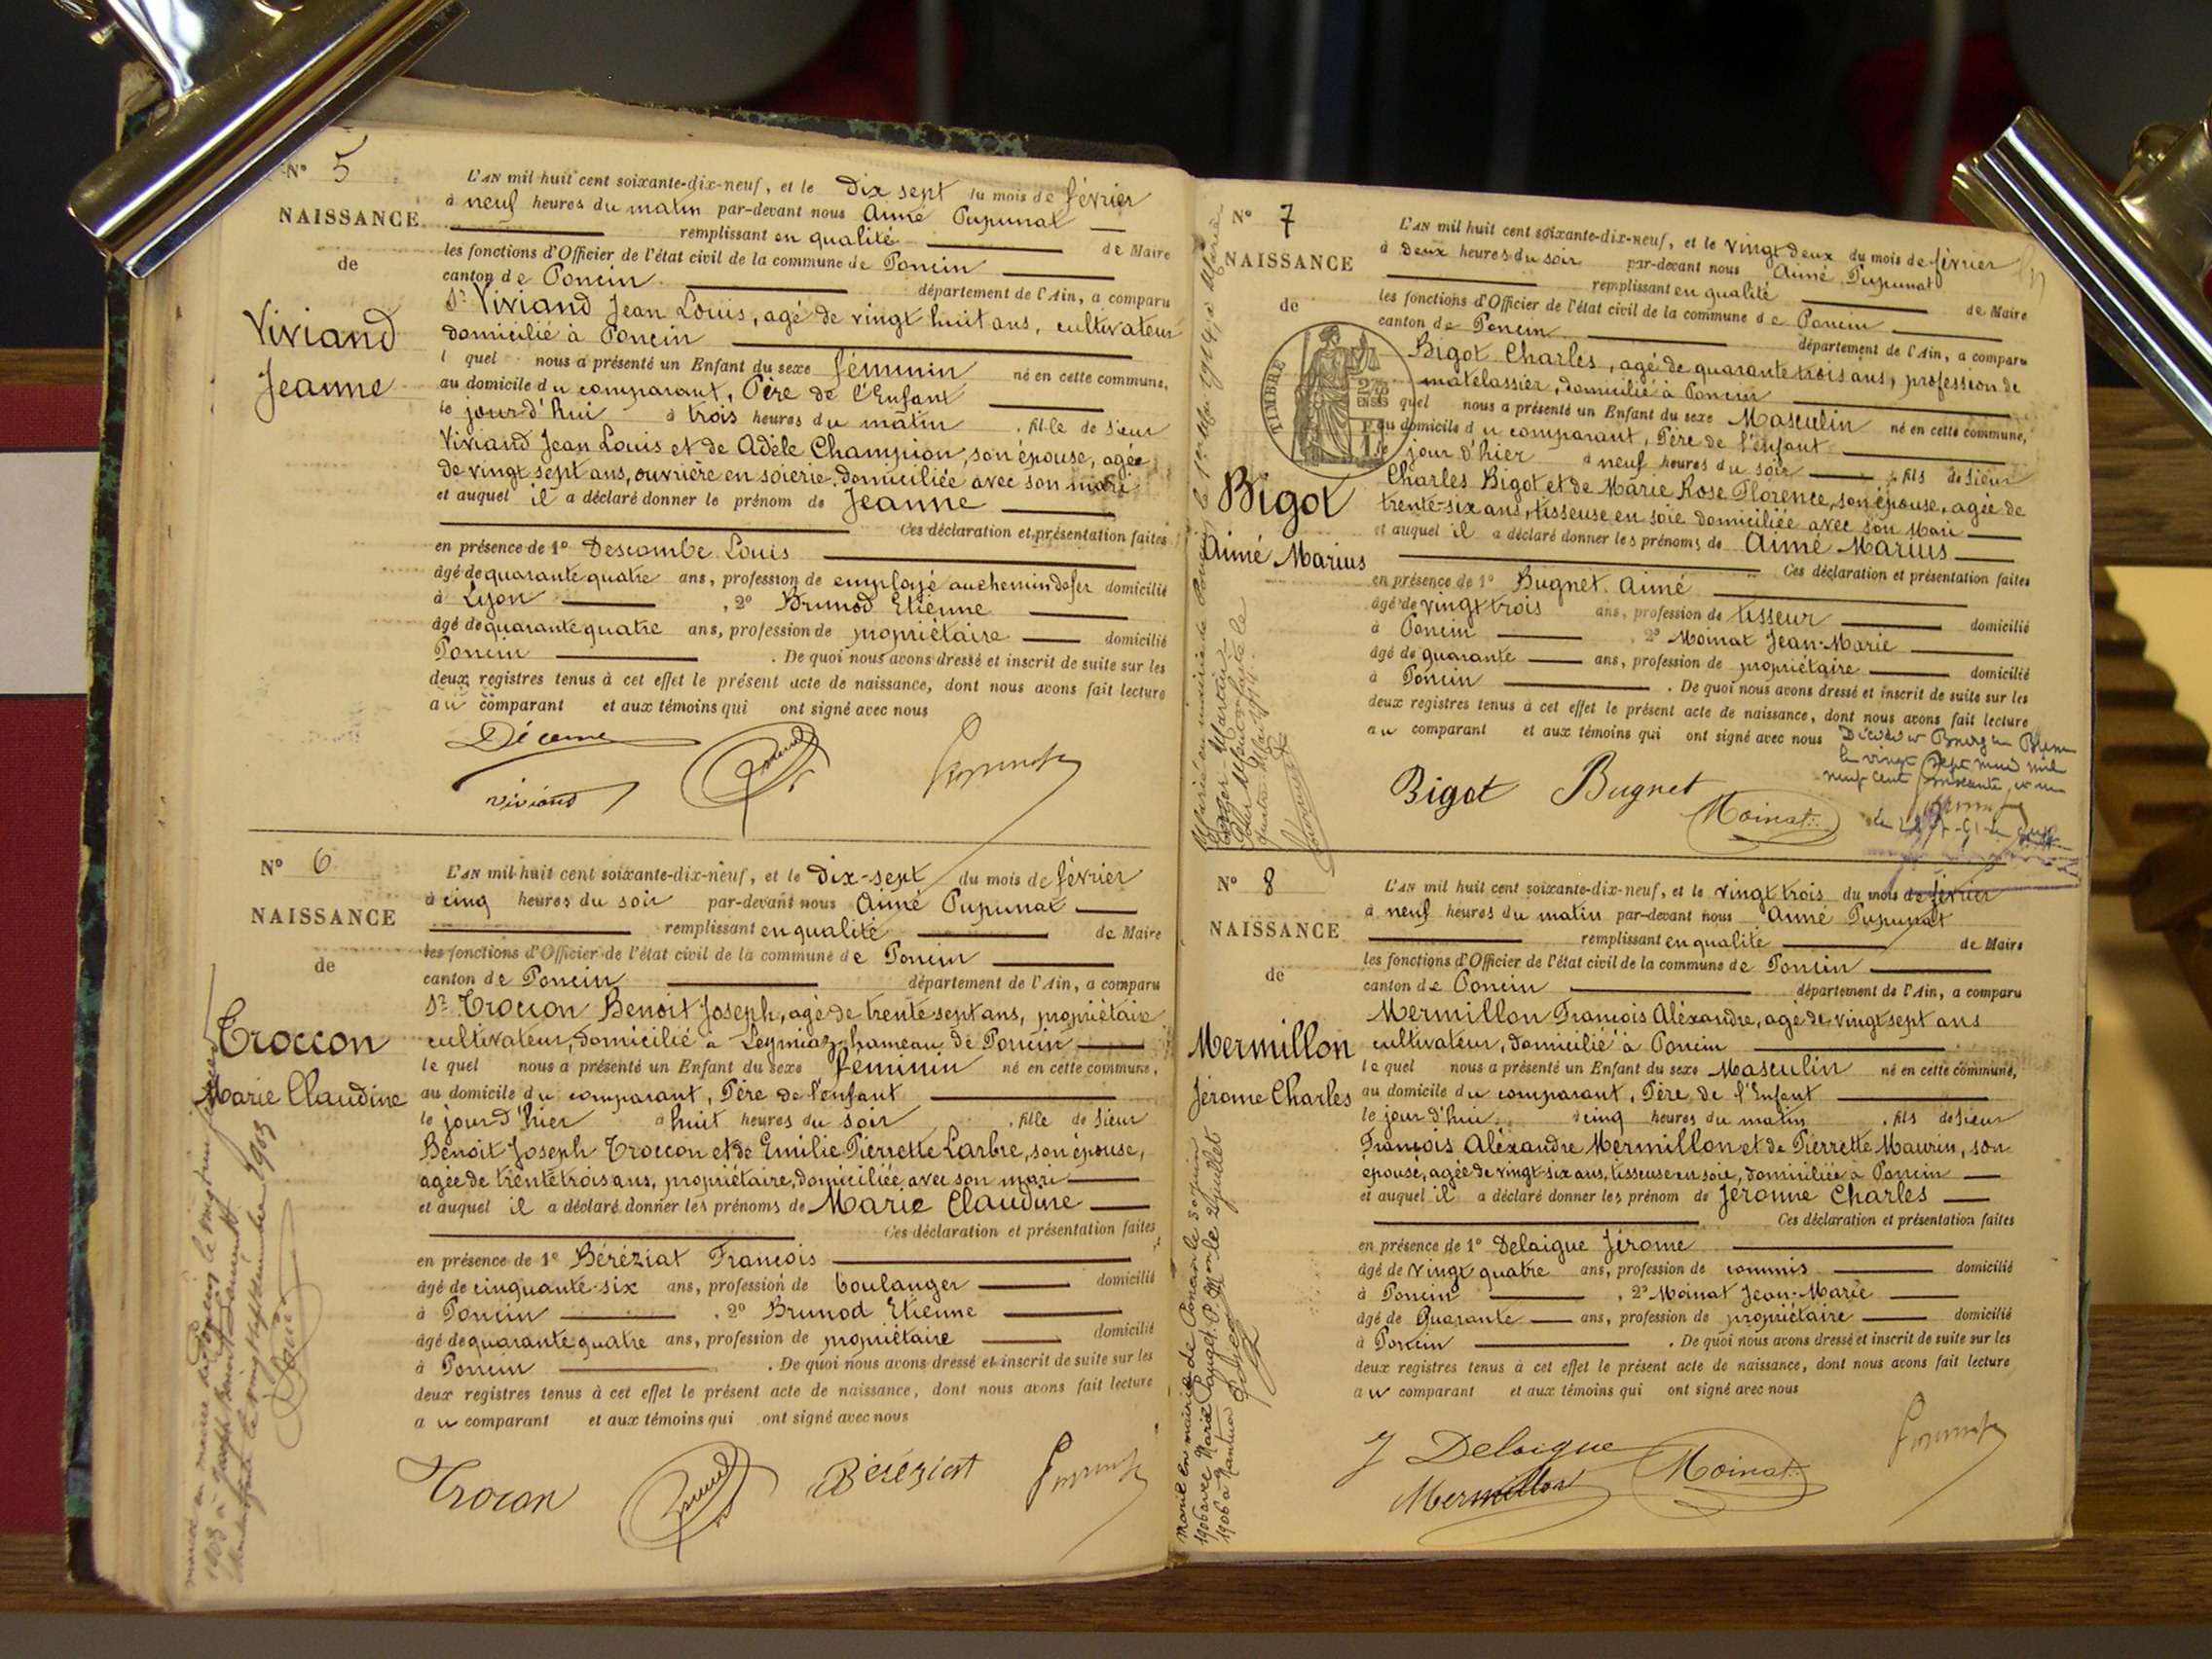 N° 5
NAISSANCE
de
Viviand
Jeanne
L'AN mil huit cent soixante-dix-neuf, et le Dix sept du mois de février
à neuf heures du matin par-devant nous Aimé Pupunat
remplissant en qualité de Maire
les fonctions d'Officier de l'état civil de la commune de Poncin
canton de Poncin département de l'Ain, a comparu
Sr Viviand Jean Louis, agé de vingt huit ans, cultivateur
domicilié à Poncin
l quel nous a présenté un Enfant du sexe féminin né en cette commune,
au domicile du comparant, Père de l'Enfant
le jourd'hui à trois heures du matin, fille de Sieur
Viviand Jean Louis et de Adèle Champion, son épouse, agée
de vingt sept ans, ouvrière en soierie, domiciliée avec son mari
et auquel il a déclaré donner le prénom de Jeanne
Ces déclaration et présentation faites
en présence de 1° Descombe Louis
âgé de quarante quatre ans, profession de employé au chemin de fer domicilié
à Lyon, 2° Brunod Etienne
âgé de quarante quatre ans, profession de propriétaire domicilié
Poncin. De quoi nous avons dressé et inscrit de suite sur les
deux registres tenus à cet effet le présent acte de naissance, dont nous avons fait lecture
au comparant et aux témoins qui ont signé avec nous
Viviand
N° 6
NAISSANCE
de
Troccon
Marie Claudine
L'AN mil huit cent soixante-dix-neuf, et le Dix-sept du mois de février
à cinq heures du soir par-devant nous Aimé Pupunat
remplissant en qualité de Maire
les fonctions d'Officier de l'état civil de la commune de Poncin
canton de Poncin département de l'Ain, a comparu
Sr Troccon Benoit Joseph, agé de trente sept ans, propriétaire
cultivateur, domicilié à Leymiaz, hameau de Poncin
le quel nous a présenté un Enfant du sexe féminin né en cette commune,
au domicile du comparant, Père de l'enfant
le jour d'hier à huit heures du soir, fille de Sieur
Benoit Joseph Troccon et de Emilie Pierrette Larbre, son épouse,
agée de trente trois ans, propriétaire, domiciliée avec son mari
et auquel il a déclaré donner les prénoms de Marie Claudine
Ces déclaration et présentation faites
en présence de 1° Béréziat François
âgé de cinquante-six ans, profession de boulanger domicilié
à Poncin, 2° Brunod Etienne
âgé de quarante quatre ans, profession de propriétaire domicilié
à Poncin. De quoi nous avons dressé et inscrit de suite sur les
deux registres tenus à cet effet le présent acte de naissance, dont nous avons fait lecture
au comparant et aux témoins qui ont signé avec nous
Trocon Béréziat
N° 7
NAISSANCE
de
TIMBRE
Bigot
Aimé Marius
L'AN mil huit cent soixante-dix-neuf, et le vingt deux du mois de février
à deux heures du soir par-devant nous Aimé Pupunat
remplissant en qualité de Maire
les fonctions d'Officier de l'état civil de la commune de Poncin
canton de Poncin département de l'Ain, a comparu
Bigot Charles, agé de quarante trois ans, profession de
matelassier, domicilié à Poncin
quel nous a présenté un Enfant du sexe Masculin né en cette commune,
au domicile du comparant, Père de l'enfant
le jour d'hier à neuf heures du soir, fils de Sieur
Charles Bigot et de Marie Rose Florence, son épouse, agée de
trente-six ans, tisseuse en soie domiciliée avec son Mari
et auquel il a déclaré donner les prénoms de Aimé Marius
Ces déclaration et présentation faites
en présence de 1° Bugnet Aimé
âgé de vingt trois ans, profession de tisseur domicilié
à Poncin, 2° Moinat Jean-Marie
âgé de quarante ans, profession de propriétaire domicilié
à Poncin. De quoi nous avons dressé et inscrit de suite sur les
deux registres tenus à cet effet le présent acte de naissance, dont nous avons fait lecture
au comparant et aux témoins qui ont signé avec nous
le vingt sept mil
neuf cent soixante et un
Bigot Bugnet Moinat
N° 8
NAISSANCE
de
Mermillon
Jérome Charles
L'AN mil huit cent soixante-dix-neuf, et le vingt trois du mois de février
à neuf heures du matin par-devant nous Aimé Pupunat
remplissant en qualité de Maire
les fonctions d'Officier de l'état civil de la commune de Poncin
canton de Poncin département de l'Ain, a comparu
Mermillon François Aléxandre, agé de vingt sept ans
cultivateur, domicilié à Poncin
le quel nous a présenté un Enfant du sexe Masculin né en cette commune,
au domicile du comparant, Père de l'Enfant
le jour d'hui à cinq heures du matin, fils de Sieur
François Aléxandre Mermillon et de Pierrette Maurin, son
épouse, agée de vingt-six ans, tisseuse en soie, domiciliée à Poncin
et auquel il a déclaré donner les prénom de Jérome Charles
Ces déclaration et présentation faites
en présence de 1° Delaigue Jérome
âgé de vingt quatre ans, profession de commis domicilié
à Poncin, 2° Moinat Jean-Marie
âgé de Quarante ans, profession de propriétaire domicilié
à Poncin. De quoi nous avons dressé et inscrit de suite sur les
deux registres tenus à cet effet le présent acte de naissance, dont nous avons fait lecture
au comparant et aux témoins qui ont signé avec nous
J Delaigue Moinat
Mermillon